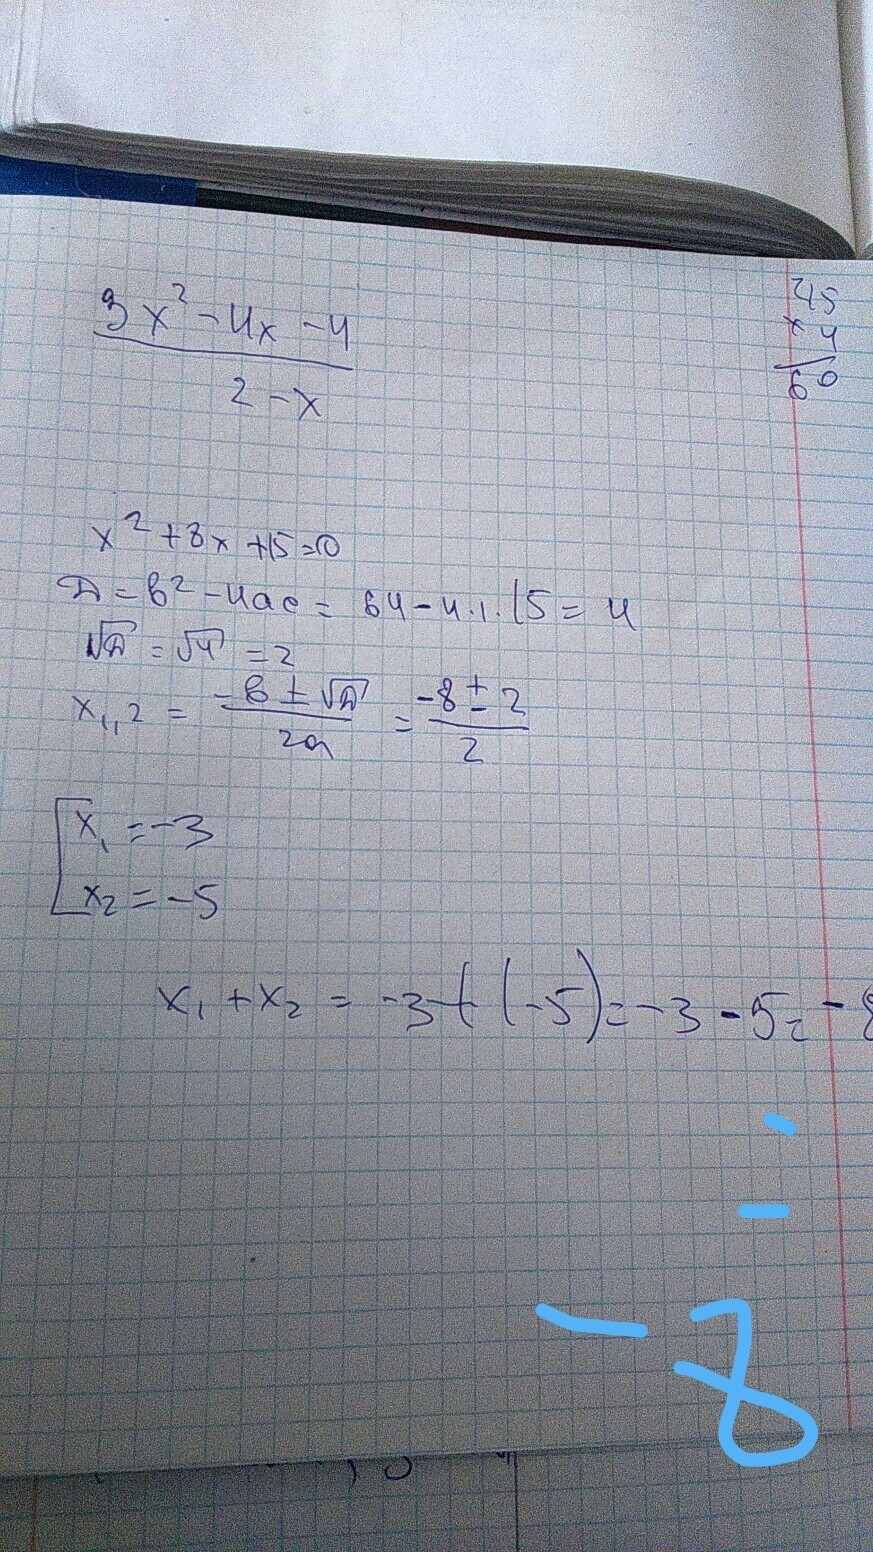 3x² - 4x - 4
2 - x
15
× 4
60
x² + 8x + 15 = 0
D = b² - 4ac = 64 - 4·1·15 = 4
√D = √4 = 2
x₁,₂ = (-b ± √D)/2a = (-8 ± 2)/2
[x₁ = -3
x₂ = -5
x₁ + x₂ = -3 + (-5) = -3 - 5 = -8
- 8